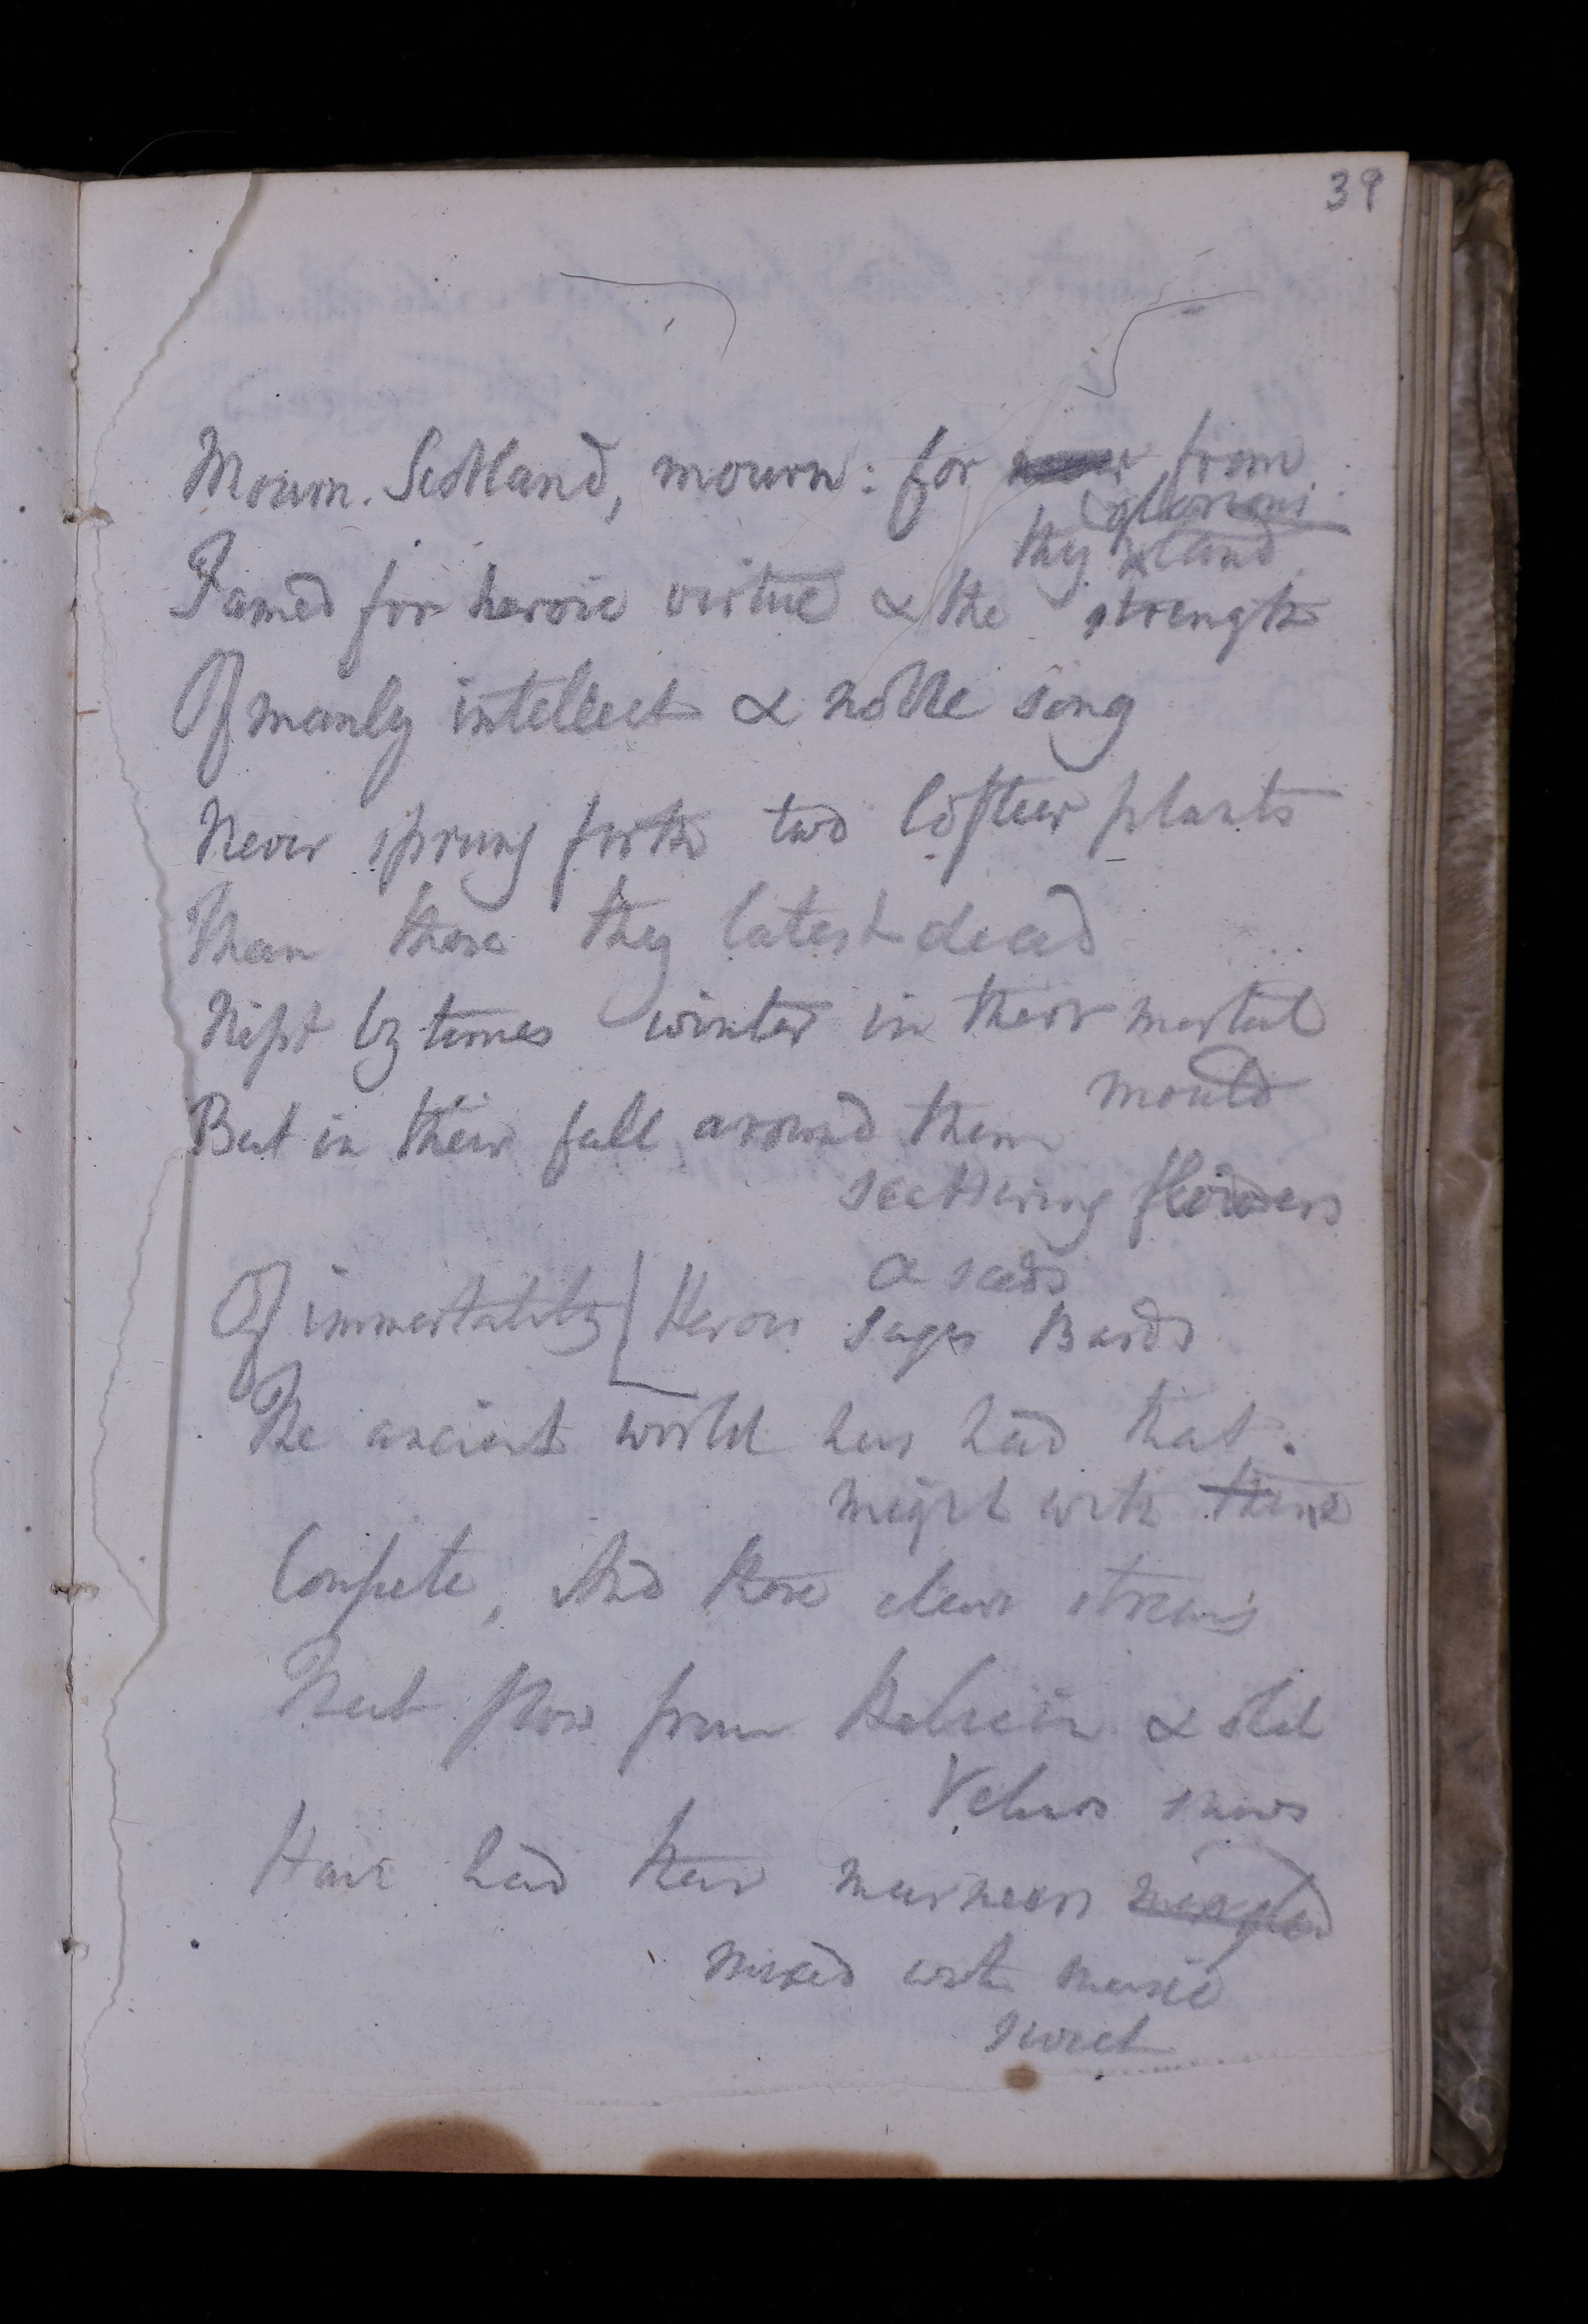 39
Mourn. Scotland, mourn: for never from
glorious
thy land
Famed for heroic virtue & the strength
Of manly intellect & noble song
Never sprung forth two loftier plants
Than those thy latest dead
Nipt by times winter in their mortal
mould
But in their fall around them
scattering flowers
& seeds
Of immortality Heroes Sages Bards
The ancient world has had that
might with thine
Compete, And those clear streams
That flow from Helicon & old
snows
Have had their murmurs mingled
mixed with music
sweet